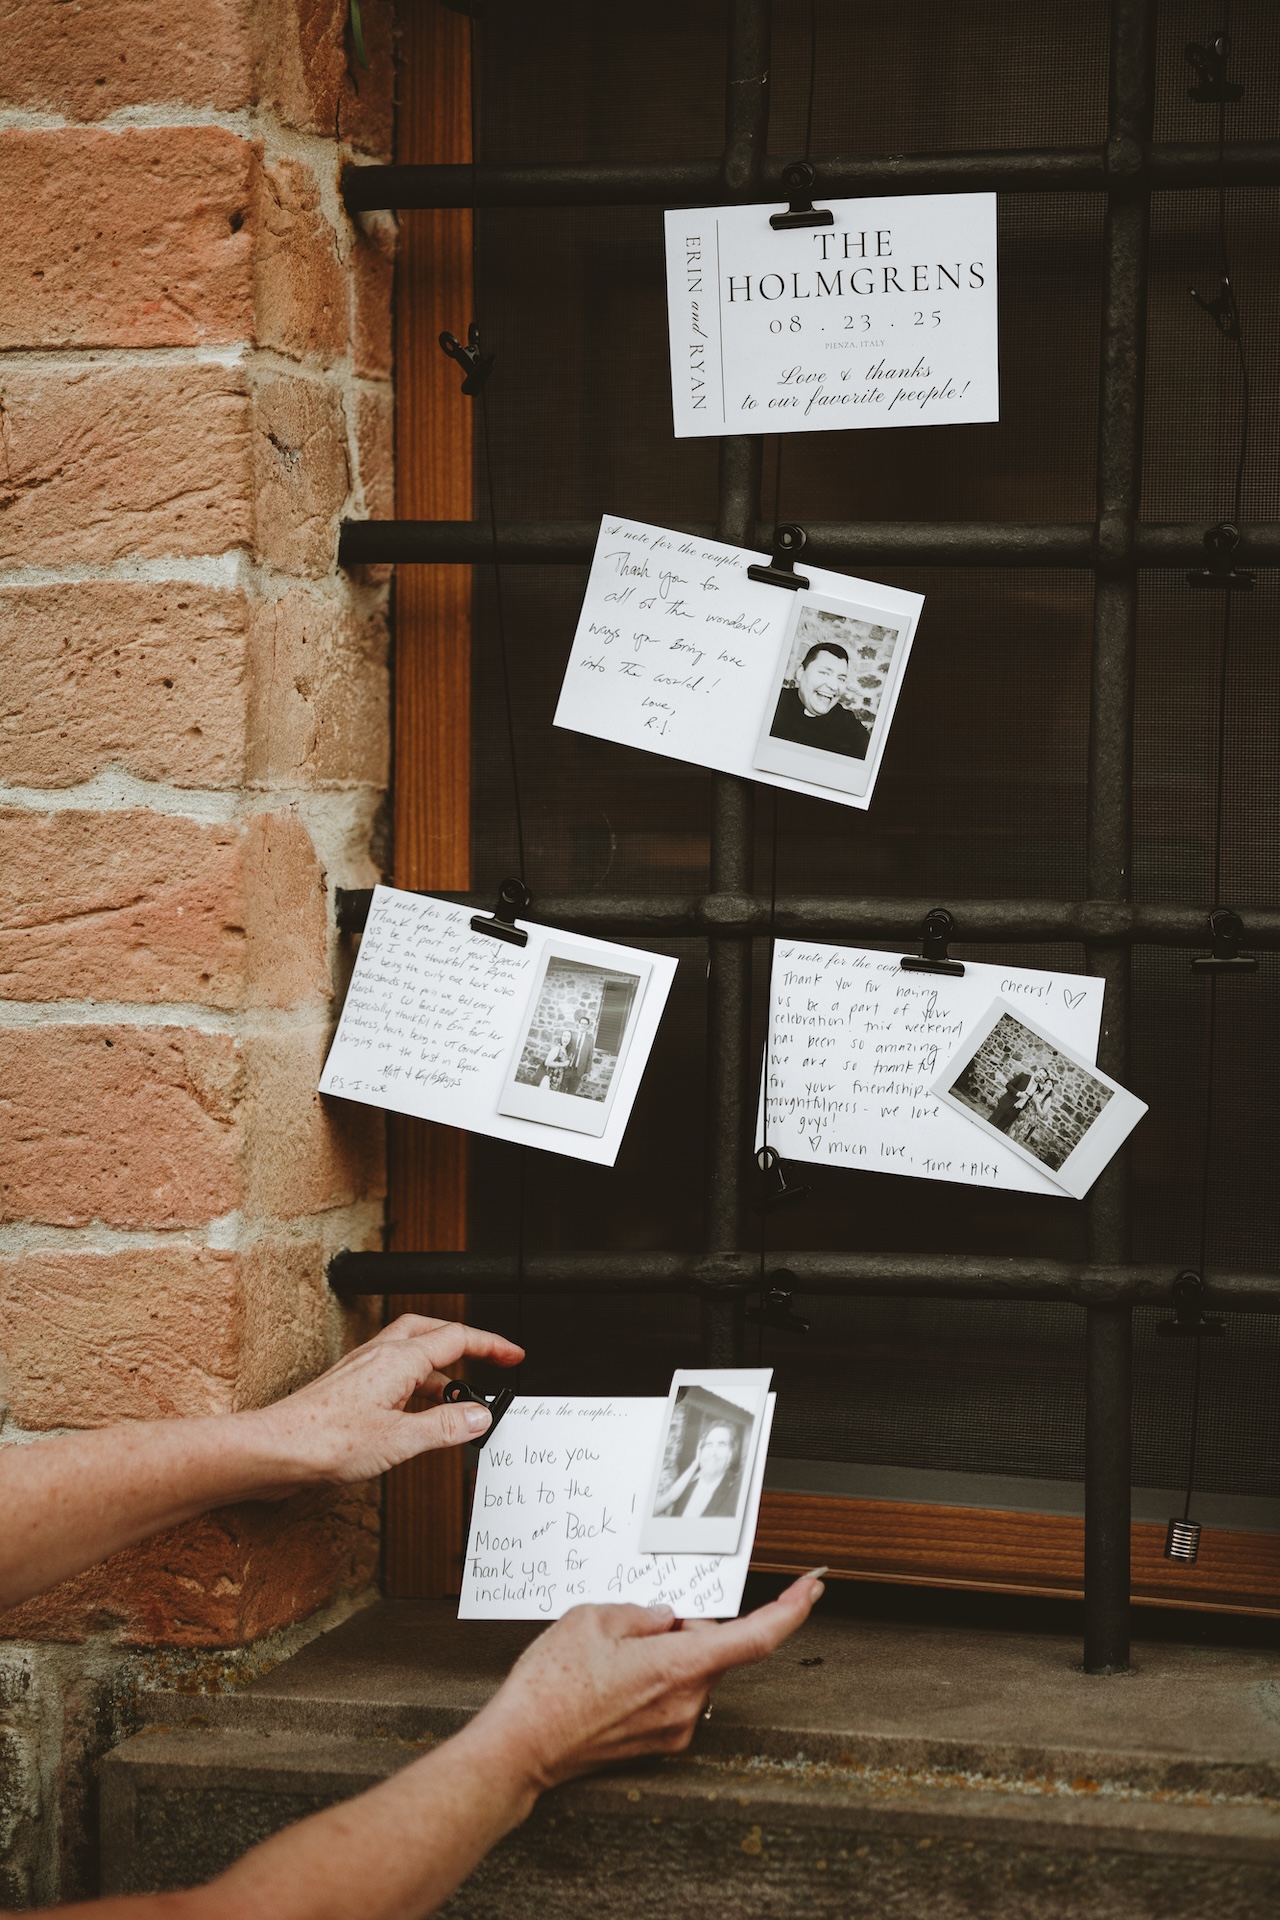 ERIN and RYAN
THE
HOLMGRENS
08 . 23 . 25
PIENZA, ITALY
Love & thanks
to our favorite people!
A note for the couple...
Thank you for
all of the wonderful
ways you Bring love
into the world!
Love,
R.J.
A note for the
Thank you for letting
us be a part of your special
day. I am thankful to Ryan
for being the only one here who
understands the pain we feel every
March as fans and I am
especially thankful to Erin for her
kindness, heart, being a UT Grad and
bringing out the best in Ryan
- Matt &
P.S - I = we
A note for the couple...
Cheers! ♡
Thank you for having
us be a part of your
celebration! this weekend
has been so amazing!
we are so thankful
for your friendship +
thoughtfulness - we love
you guys!
♡ much love,
+ Alex
note for the couple...
We love you
both to the
Moon and Back!
Thank ya for
including us.
Aunt Jill
and the other
guy